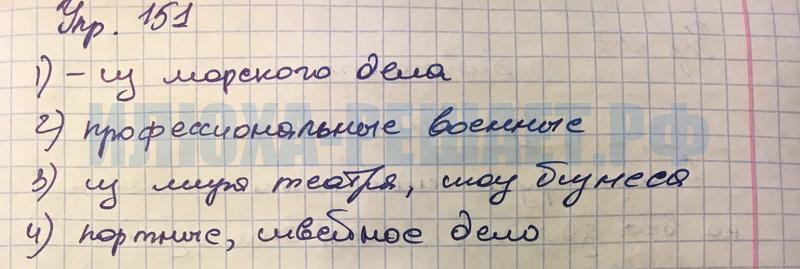 Упр. 151
1) – из морского дела
2) профессиональные военные
3) из мира театра, шоу бизнеса
4) портные, швейное дело
ИЛЮХА-РЕШАЕТ.РФ